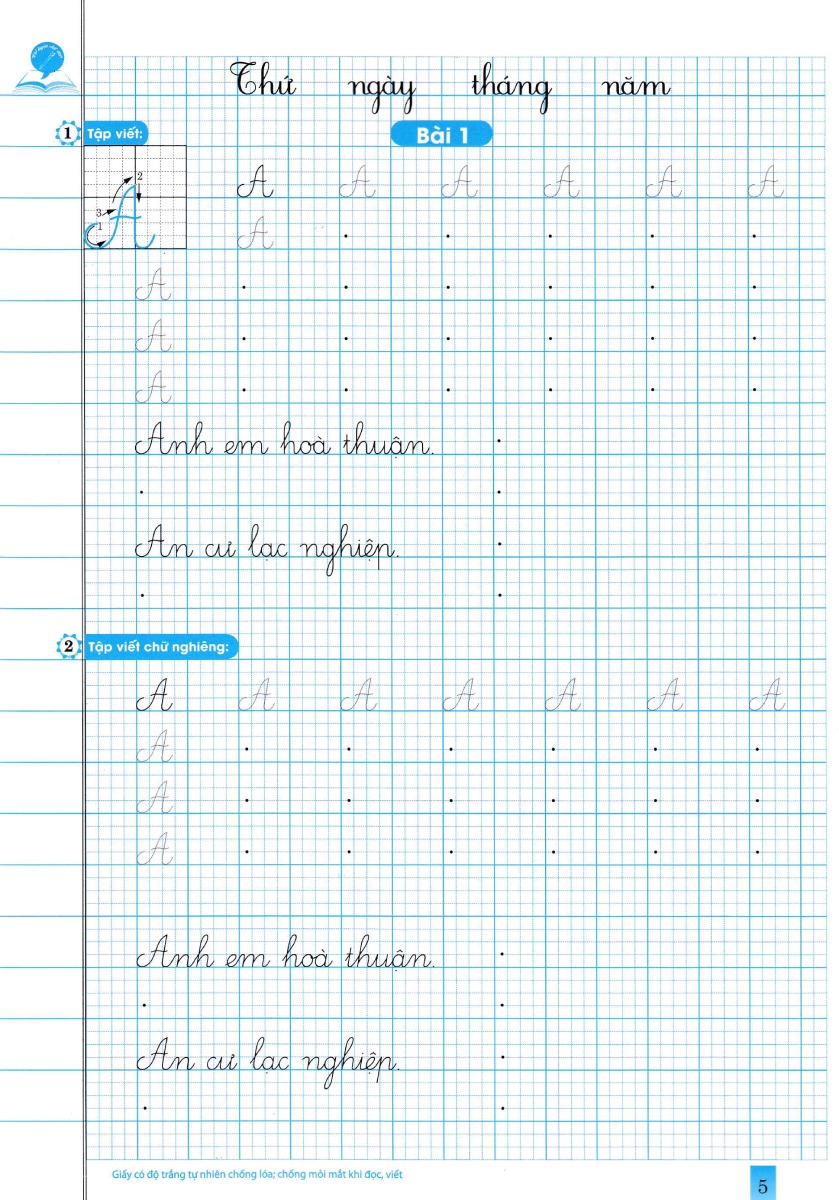 Thứ ngày tháng năm
1 Tập viết: Bài 1
2
3
1
A A A A A A
A
A
A
A
Anh em hoà thuận.
An cư lạc nghiệp.
2 Tập viết chữ nghiêng:
A A A A A A A
A
A
A
Anh em hoà thuận.
An cư lạc nghiệp.
Giấy có độ trắng tự nhiên chống lóa; chống mỏi mắt khi đọc, viết
5